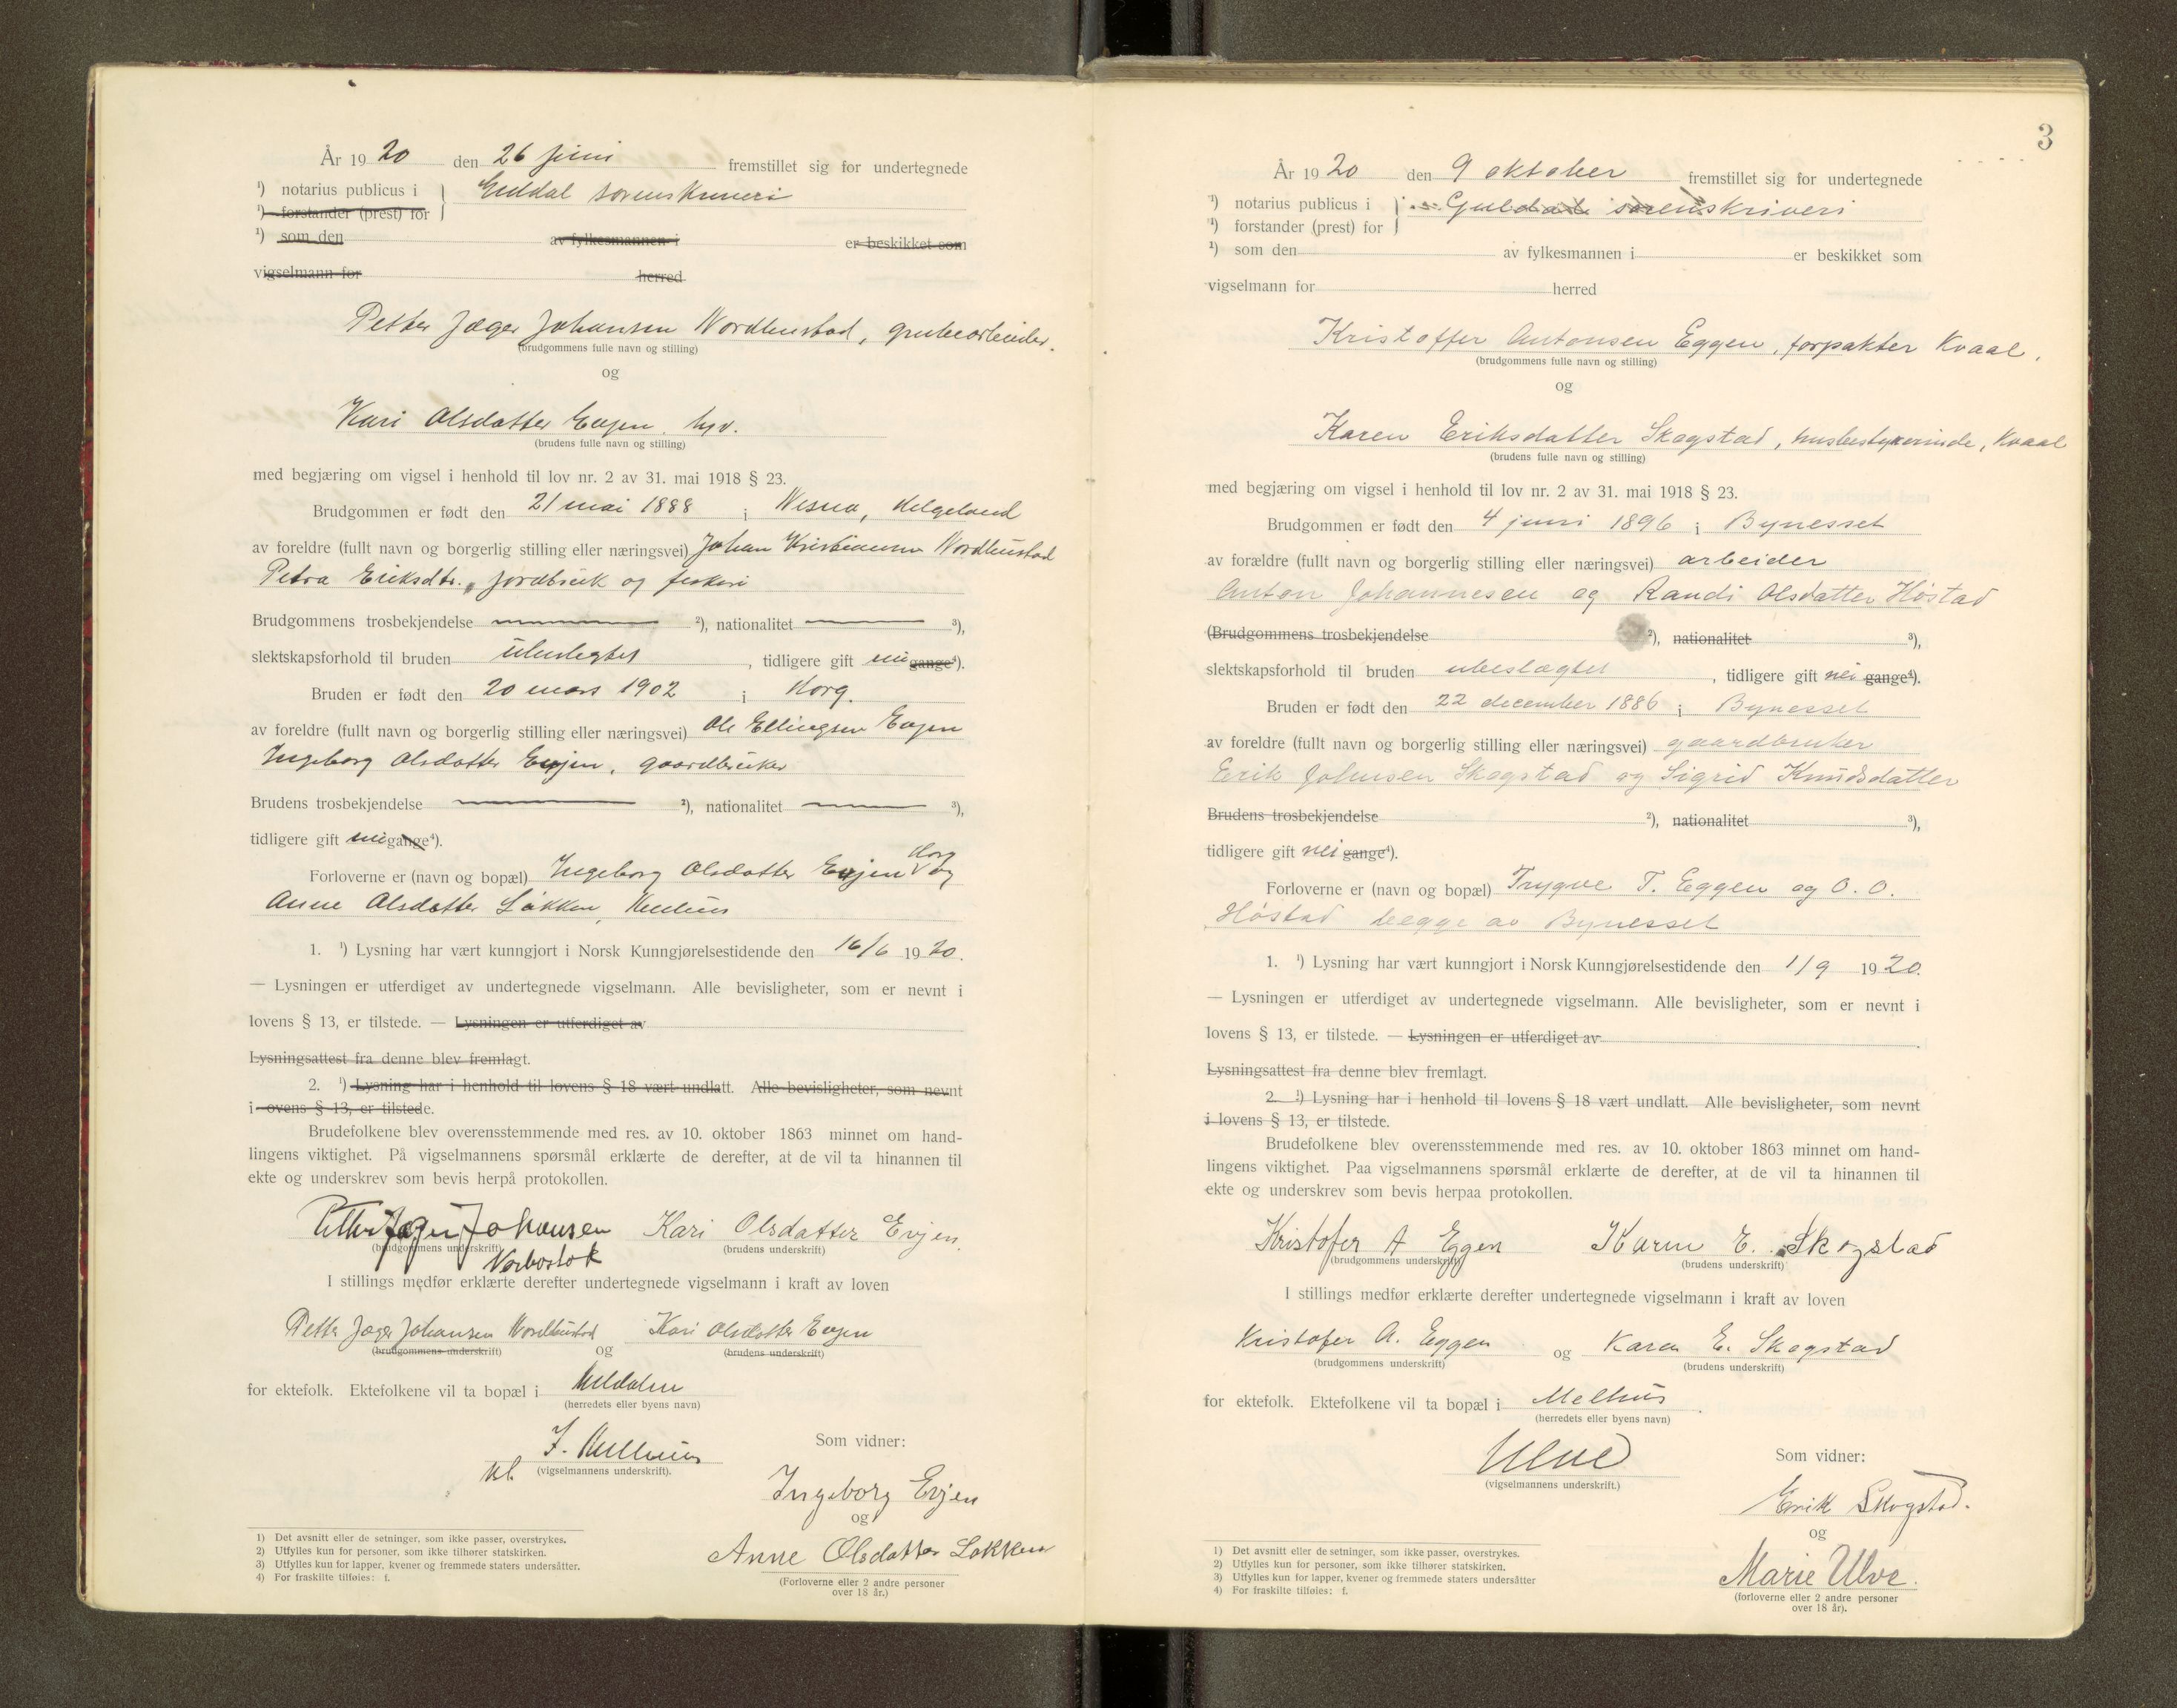 År 1920 den 26 juni fremstillet sig for undertegnede
¹) notarius publicus i } Guldal sorenskriveri
¹) forstander (prest) for
¹) som den av fylkesmannen i er beskikket som
vigselmann for herred
Petter Jæger Johansen Nordbustad, grubearbeider.
(brudgommens fulle navn og stilling)
og
Kari Olsdatter Evjen. hpv.
(brudens fulle navn og stilling)
med begjæring om vigsel i henhold til lov nr. 2 av 31. mai 1918 § 23.
Brudgommen er født den 21 mai 1888 i Nesna, Helgeland
av foreldre (fullt navn og borgerlig stilling eller næringsvei) Johan Kristiansen Nordbustad
Petra Eriksdtr., jordbruk og fiskeri
Brudgommens trosbekjendelse ²), nationalitet ³),
slektskapsforhold til bruden ubeslegtet, tidligere gift nei gange⁴).
Bruden er født den 20 mars 1902 i Horg.
av foreldre (fullt navn og borgerlig stilling eller næringsvei) Ole Ellingsen Evjen
Ingeborg Olsdatter Evjen, gaardbruker
Brudens trosbekjendelse ²), nationalitet ³),
tidligere gift nei gange⁴).
Forloverne er (navn og bopæl) Ingeborg Olsdatter Evjen Horg og
Anne Olsdatter Løkken, Melhus
1. ¹) Lysning har vært kunngjort i Norsk Kunngjørelsestidende den 16/6 1920.
— Lysningen er utferdiget av undertegnede vigselmann. Alle bevisligheter, som er nevnt i
lovens § 13, er tilstede. — Lysningen er utferdiget av
Lysningsattest fra denne blev fremlagt.
2. ¹) Lysning har i henhold til lovens § 18 vært undlatt. Alle bevisligheter, som nevnt
i lovens § 13, er tilstede.
Brudefolkene blev overensstemmende med res. av 10. oktober 1863 minnet om hand-
lingens viktighet. På vigselmannens spørsmål erklærte de derefter, at de vil ta hinannen til
ekte og underskrev som bevis herpå protokollen.
Petter Jæger Johansen Kari Olsdatter Evjen.
(brudgommens underskrift) (brudens underskrift)
I stillings medfør erklærte derefter undertegnede vigselmann i kraft av loven
Petter Jæger Johansen Nordbustad Kari Olsdatter Evjen
(brudgommens underskrift) og (brudens underskrift)
for ektefolk. Ektefolkene vil ta bopæl i Meldalen
(herredets eller byens navn)
Som vidner:
(vigselmannens underskrift).
Ingeborg Evjen
og
Anne Olsdatter Løkken
(Forloverne eller 2 andre personer
over 18 år.)
1) Det avsnitt eller de setninger, som ikke passer, overstrykes.
2) Utfylles kun for personer, som ikke tilhører statskirken.
3) Utfylles kun for lapper, kvener og fremmede staters undersåtter.
4) For fraskilte tilføies: f.
3
År 1920 den 9 oktober fremstillet sig for undertegnede
¹) notarius publicus i } Guldal sorenskriveri
¹) forstander (prest) for
¹) som den av fylkesmannen i er beskikket som
vigselmann for herred
Kristoffer Antonsen Eggen, forpakter Kvaal.
(brudgommens fulle navn og stilling)
og
Karen Eriksdatter Skogstad, husbestyrerinde, Kvaal
(brudens fulle navn og stilling)
med begjæring om vigsel i henhold til lov nr. 2 av 31. mai 1918 § 23.
Brudgommen er født den 4 juni 1896 i Bynesset
av forældre (fullt navn og borgerlig stilling eller næringsvei) arbeider
Anton Johannesen og Randi Olsdatter Høstad
(Brudgommens trosbekjendelse ²), nationalitet ³),
slektskapsforhold til bruden ubeslægtet, tidligere gift nei gange⁴).
Bruden er født den 22 december 1886 i Bynesset
av foreldre (fullt navn og borgerlig stilling eller næringsvei) gaardbruker
Erik Johnsen Skogstad og Sigrid Knudsdatter
Brudens trosbekjendelse ²), nationalitet ³),
tidligere gift nei gange⁴).
Forloverne er (navn og bopæl) Trygve T. Eggen og O. O.
Høstad begge av Bynesset
1. ¹) Lysning har vært kunngjort i Norsk Kunngjørelsestidende den 1/9 1920.
— Lysningen er utferdiget av undertegnede vigselmann. Alle bevisligheter, som er nevnt i
lovens § 13, er tilstede. — Lysningen er utferdiget av
Lysningsattest fra denne blev fremlagt.
2. ¹) Lysning har i henhold til lovens § 18 vært undlatt. Alle bevisligheter, som nevnt
i lovens § 13, er tilstede.
Brudefolkene blev overensstemmende med res. av 10. oktober 1863 minnet om hand-
lingens viktighet. Paa vigselmannens spørsmål erklærte de derefter, at de vil ta hinannen til
ekte og underskrev som bevis herpaa protokollen.
Kristofer A Eggen Karen E. Skogstad
(brudgommens underskrift) (brudens underskrift)
I stillings medfør erklærte derefter undertegnede vigselmann i kraft av loven
Kristofer A. Eggen og Karen E. Skogstad
(brudgommens underskrift) (brudens underskrift)
for ektefolk. Ektefolkene vil ta bopæl i Melhus.
(herredets eller byens navn)
Ulve Som vidner:
(vigselmannens underskrift.)
Erik Skogstad.
og
Marie Ulve.
(forloverne eller 2 andre personer
over 18 år).
1) Det avsnitt eller de setninger, som ikke passer, overstrykes.
2) Utfylles kun for personer, som ikke tilhører statskirken.
3) Utfylles kun for lapper, kvener og fremmede staters undersåtter
4) For fraskilte tilføies: f.